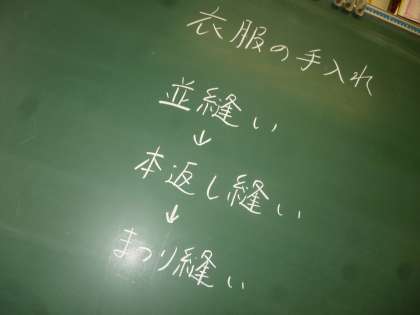 衣服の手入れ
並縫い
↓
本返し縫い
↓
まつり縫い